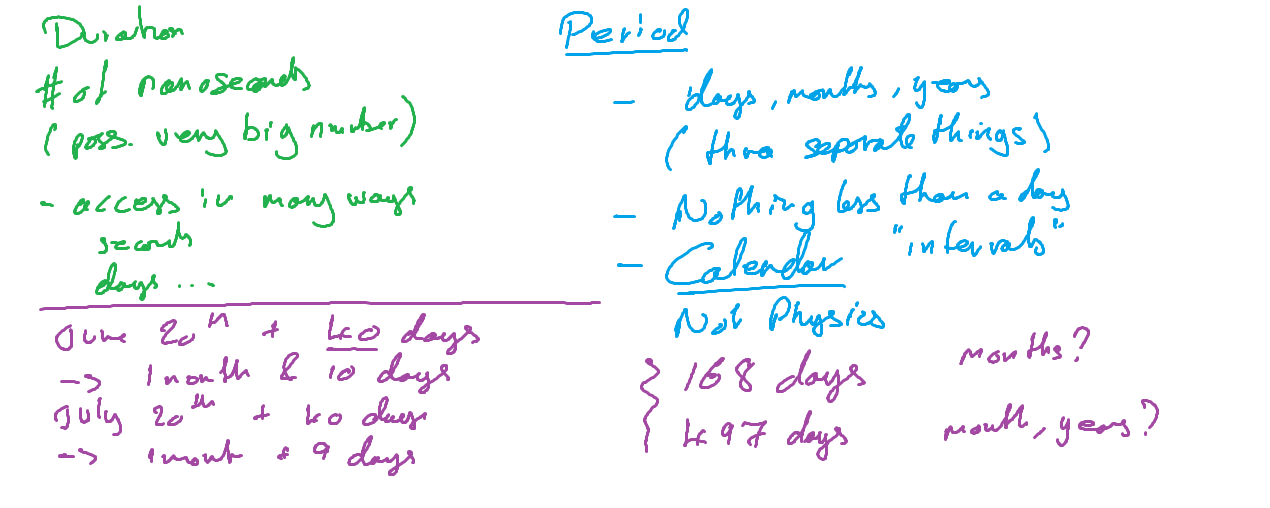 Duration
# of nanoseconds
(poss. very big number)
- access in many ways
seconds
days ...
June 20th + 40 days
-> 1 month & 10 days
July 20th + 40 days
-> 1 month + 9 days
Period
- days, months, years
(three separate things)
- Nothing less than a day
"intervals"
- Calendar
Not Physics
168 days months?
497 days month, years?